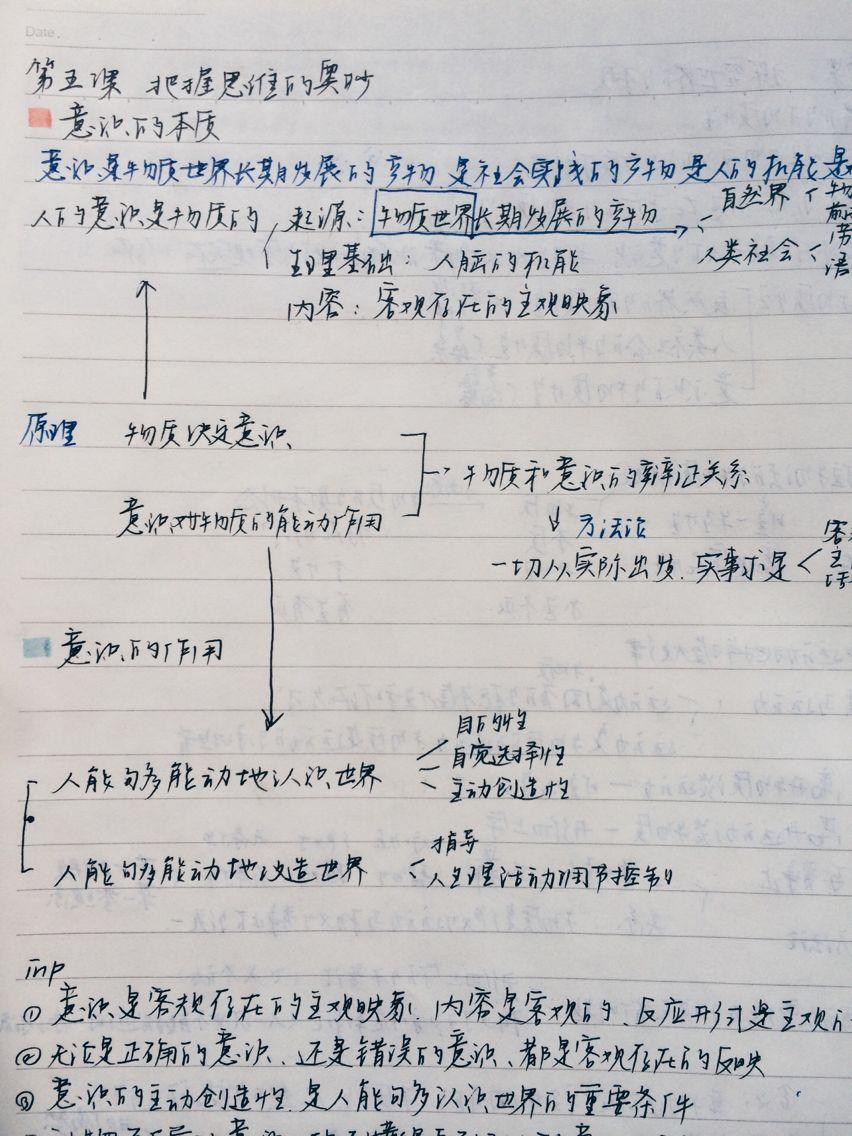 Date.
第五课 把握思维的奥妙
意识的本质
意识是物质世界长期发展的产物 是社会实践的产物 是人的机能 是
人的意识是物质的, 来源: 物质世界长期发展的产物
自然界 < 物
人类社会 <
语
生理基础: 人脑的机能
内容: 客观存在的主观映象
原理 物质决定意识
→ 物质和意识的辩证关系
意识对物质的能动作用
↓ 方法论
一切从实际出发. 实事求是 <
意识的作用
目的性
人能够能动地认识世界
自觉选择性
主动创造性
指导
人能够能动地改造世界 < 人生理活动调节控制
imp
① 意识是客观存在的主观映象. 内容是客观的、反应形式是主观
② 无论是正确的意识、还是错误的意识、都是客观存在的反映
③ 意识的主动创造性 是人能够认识世界的重要条件